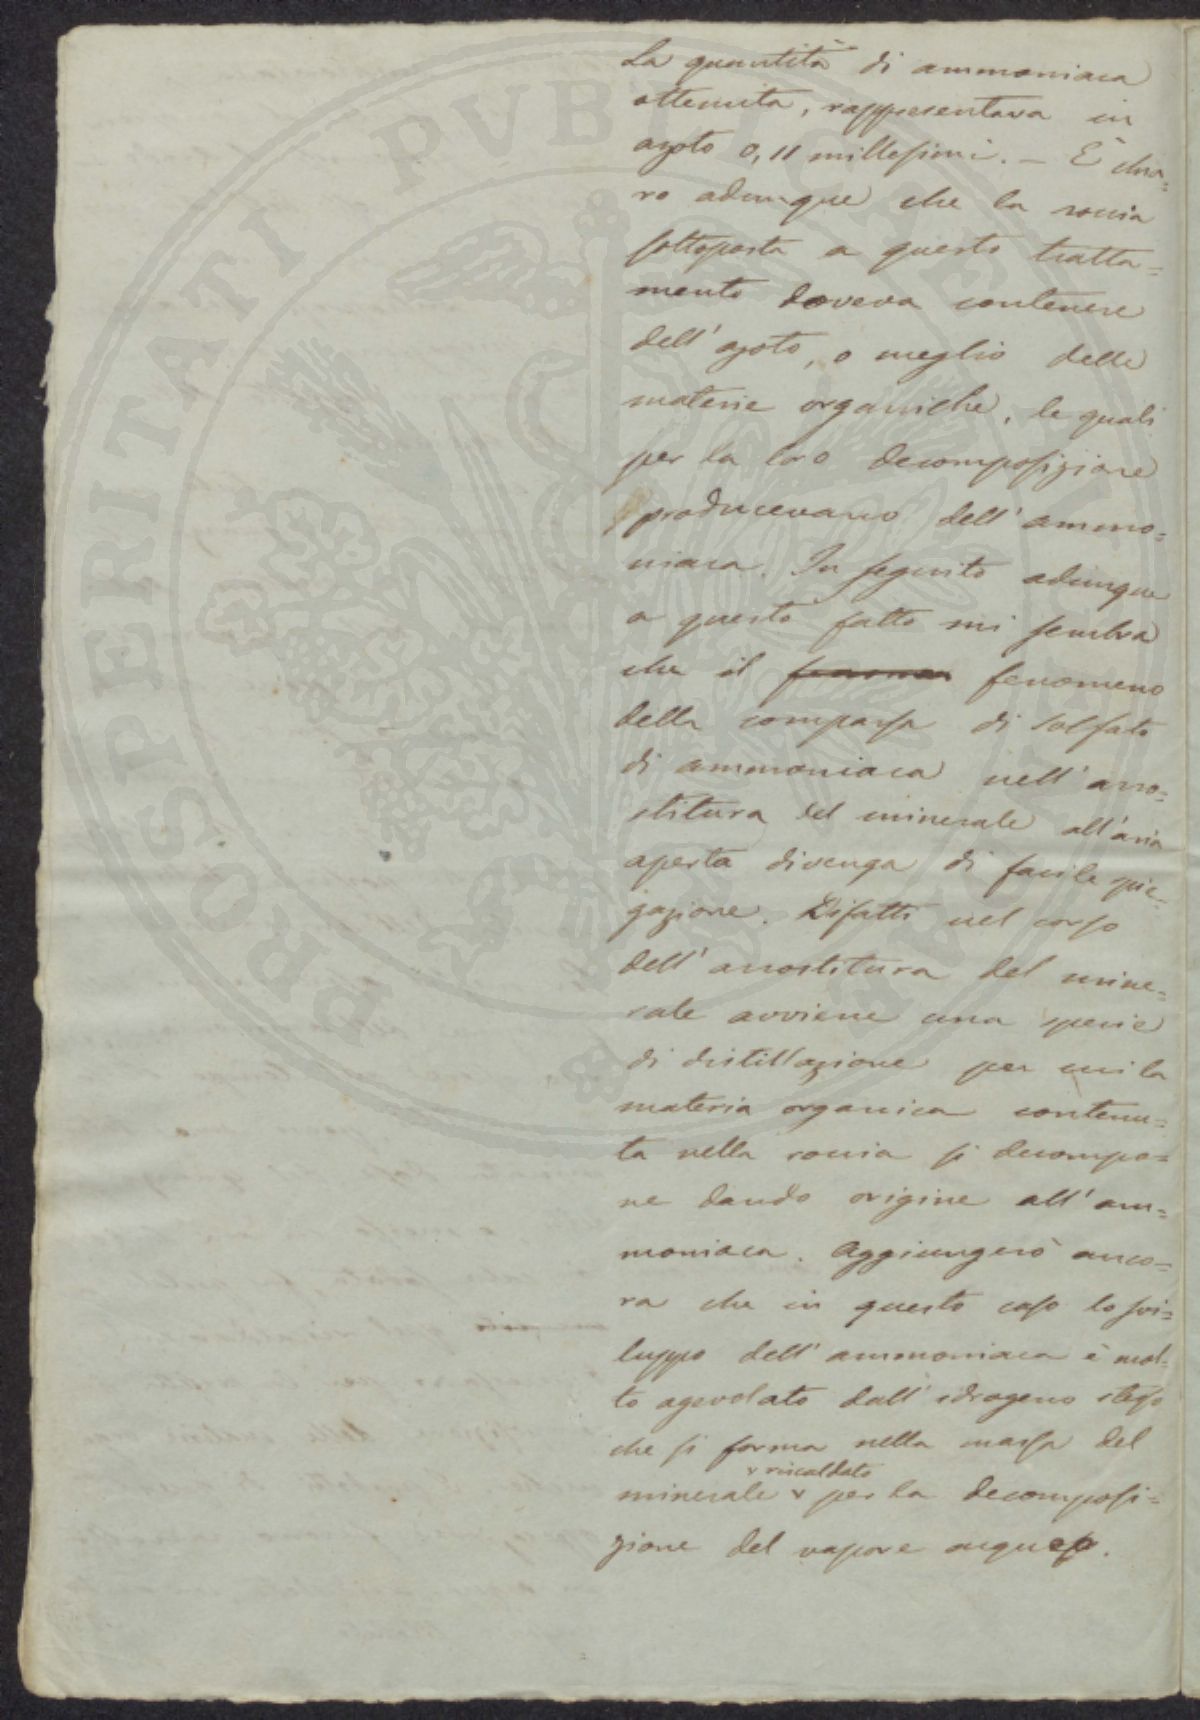 La quantità di ammoniaca
ottenuta, rappresentava in
azoto 0,11 millesimi. — È chia=
ro adunque che la roccia
sottoposta a questo tratta=
mento doveva contenere
dell'azoto, o meglio delle
materie organiche, le quali
per la loro decomposizione
producevano dell'ammo=
niaca. In seguito adunque
a questo fatto mi sembra
che il fenomeno
della comparsa di solfato
di ammoniaca nell'arro=
stitura del minerale all'aria
aperta divenga di facile spie=
gazione. Difatti nel corso
dell'arrostitura del mine=
rale avviene una specie
di distillazione per cui la
materia organica contenu=
ta nella roccia si decompo=
ne dando origine all'am=
moniaca. Aggiungerò anco=
ra che in questo caso lo svi=
luppo dell'ammoniaca è mol=
to agevolato dall'idrogeno stesso
che si forma nella massa del
riscaldato
minerale per la decomposi=
zione del vapore acqueo.
PROSPERITATI PVBLICAE